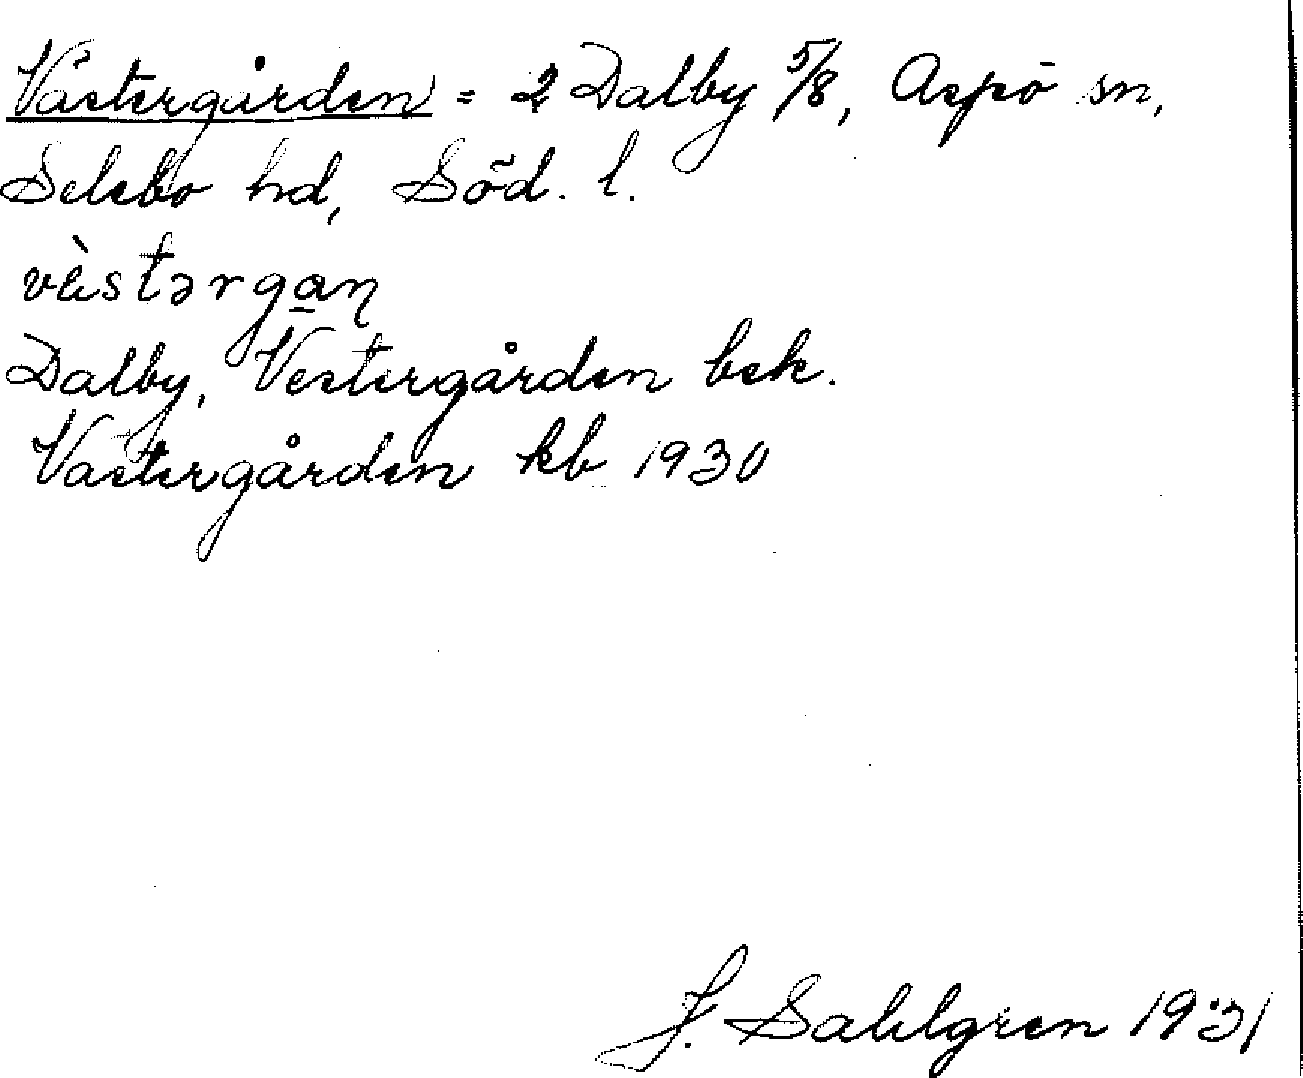 Västergården = 2 Dalby 5/8, Aspö sn,
Selebo hd, Söd. l.
vὲstərga̲ɳ
Dalby, Vestergården bek.
Västergården kb 1930
J. Sahlgren 1931